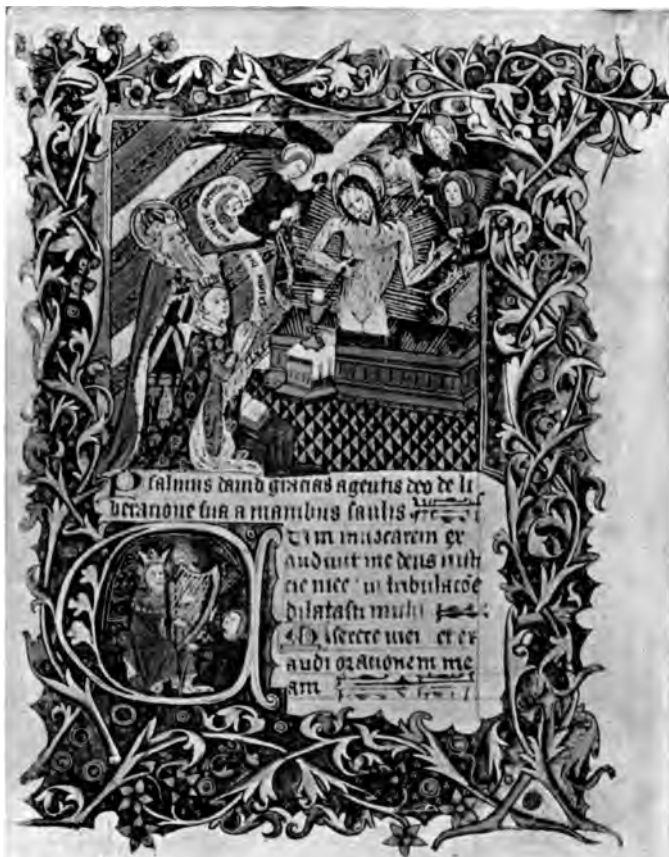 Psalmus dauid gracias agentis deo de li
beracione sua a manibus saulis
Cum inuocarem ex
audiuit me deus iusti
cie mee in tribulacōe
dilatasti michi
Miserere mei et ex
audi orationem me
am